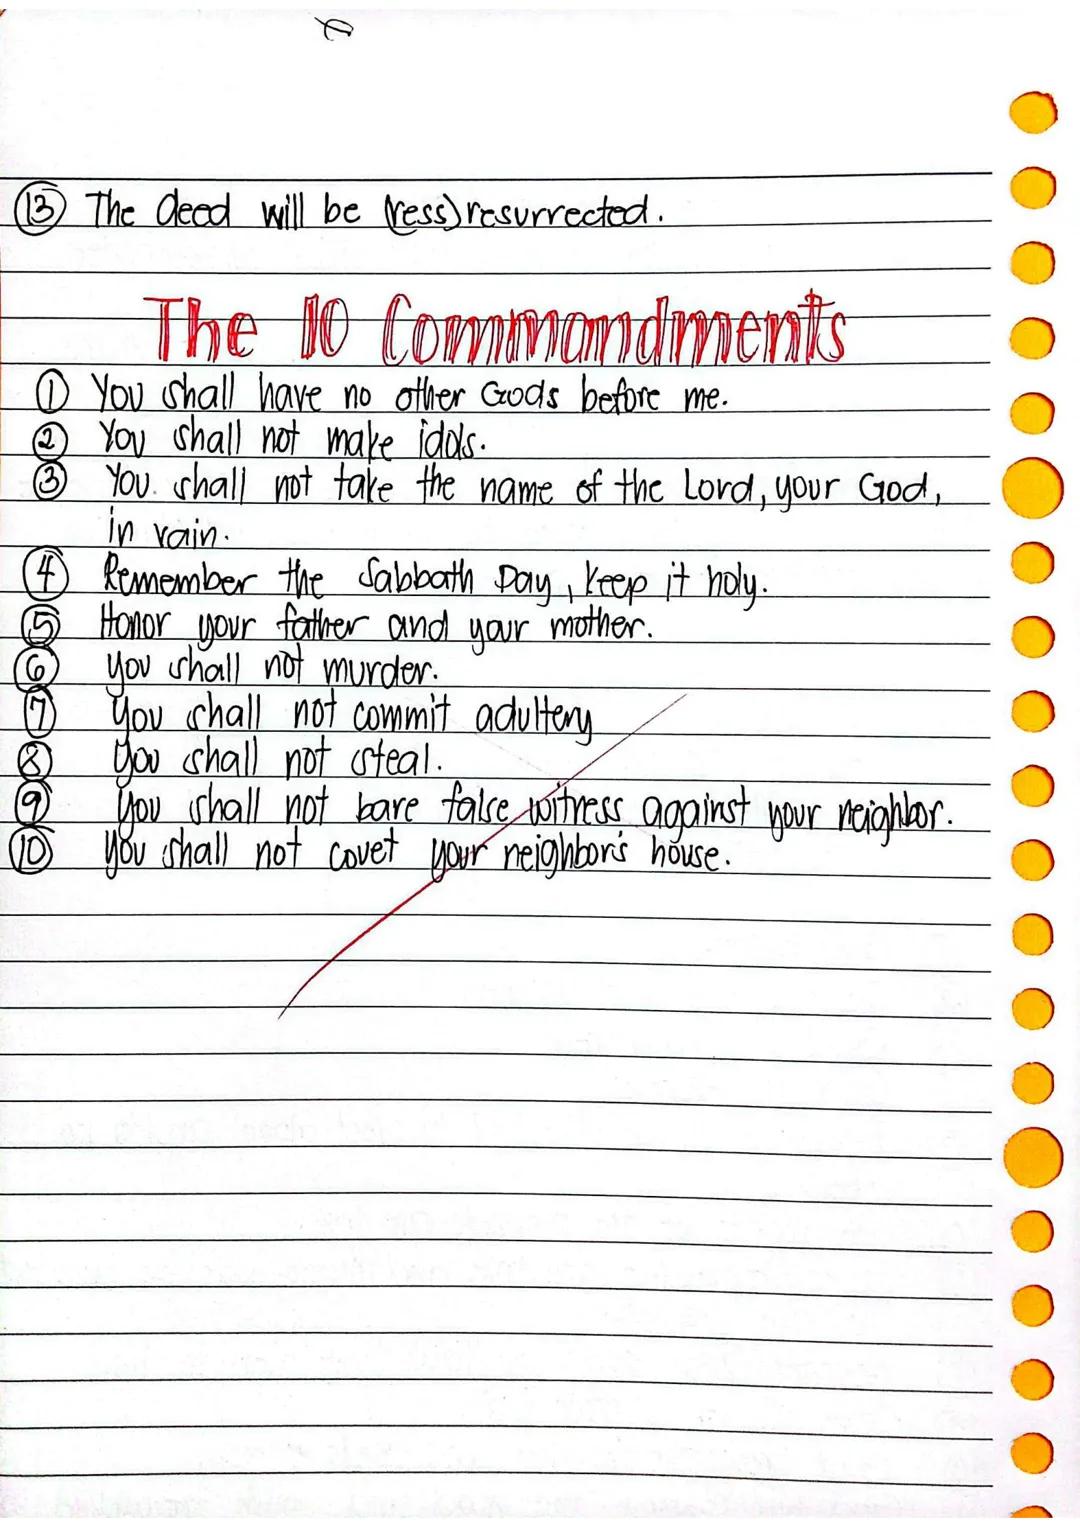 13 The deed will be (ress) resurrected.
The 10 Commandments
1 You shall have no other Gods before me.
2 You shall not make idols.
3 You. shall not take the name of the Lord, your God,
in vain.
4 Remember the Sabbath Day, keep it holy.
5 Honor your father and your mother.
6 you shall not murder.
7 you shall not commit adultery
8 you shall not steal.
9 you shall not bare false witress against your neighbor.
10 you shall not covet your neighbor's house.